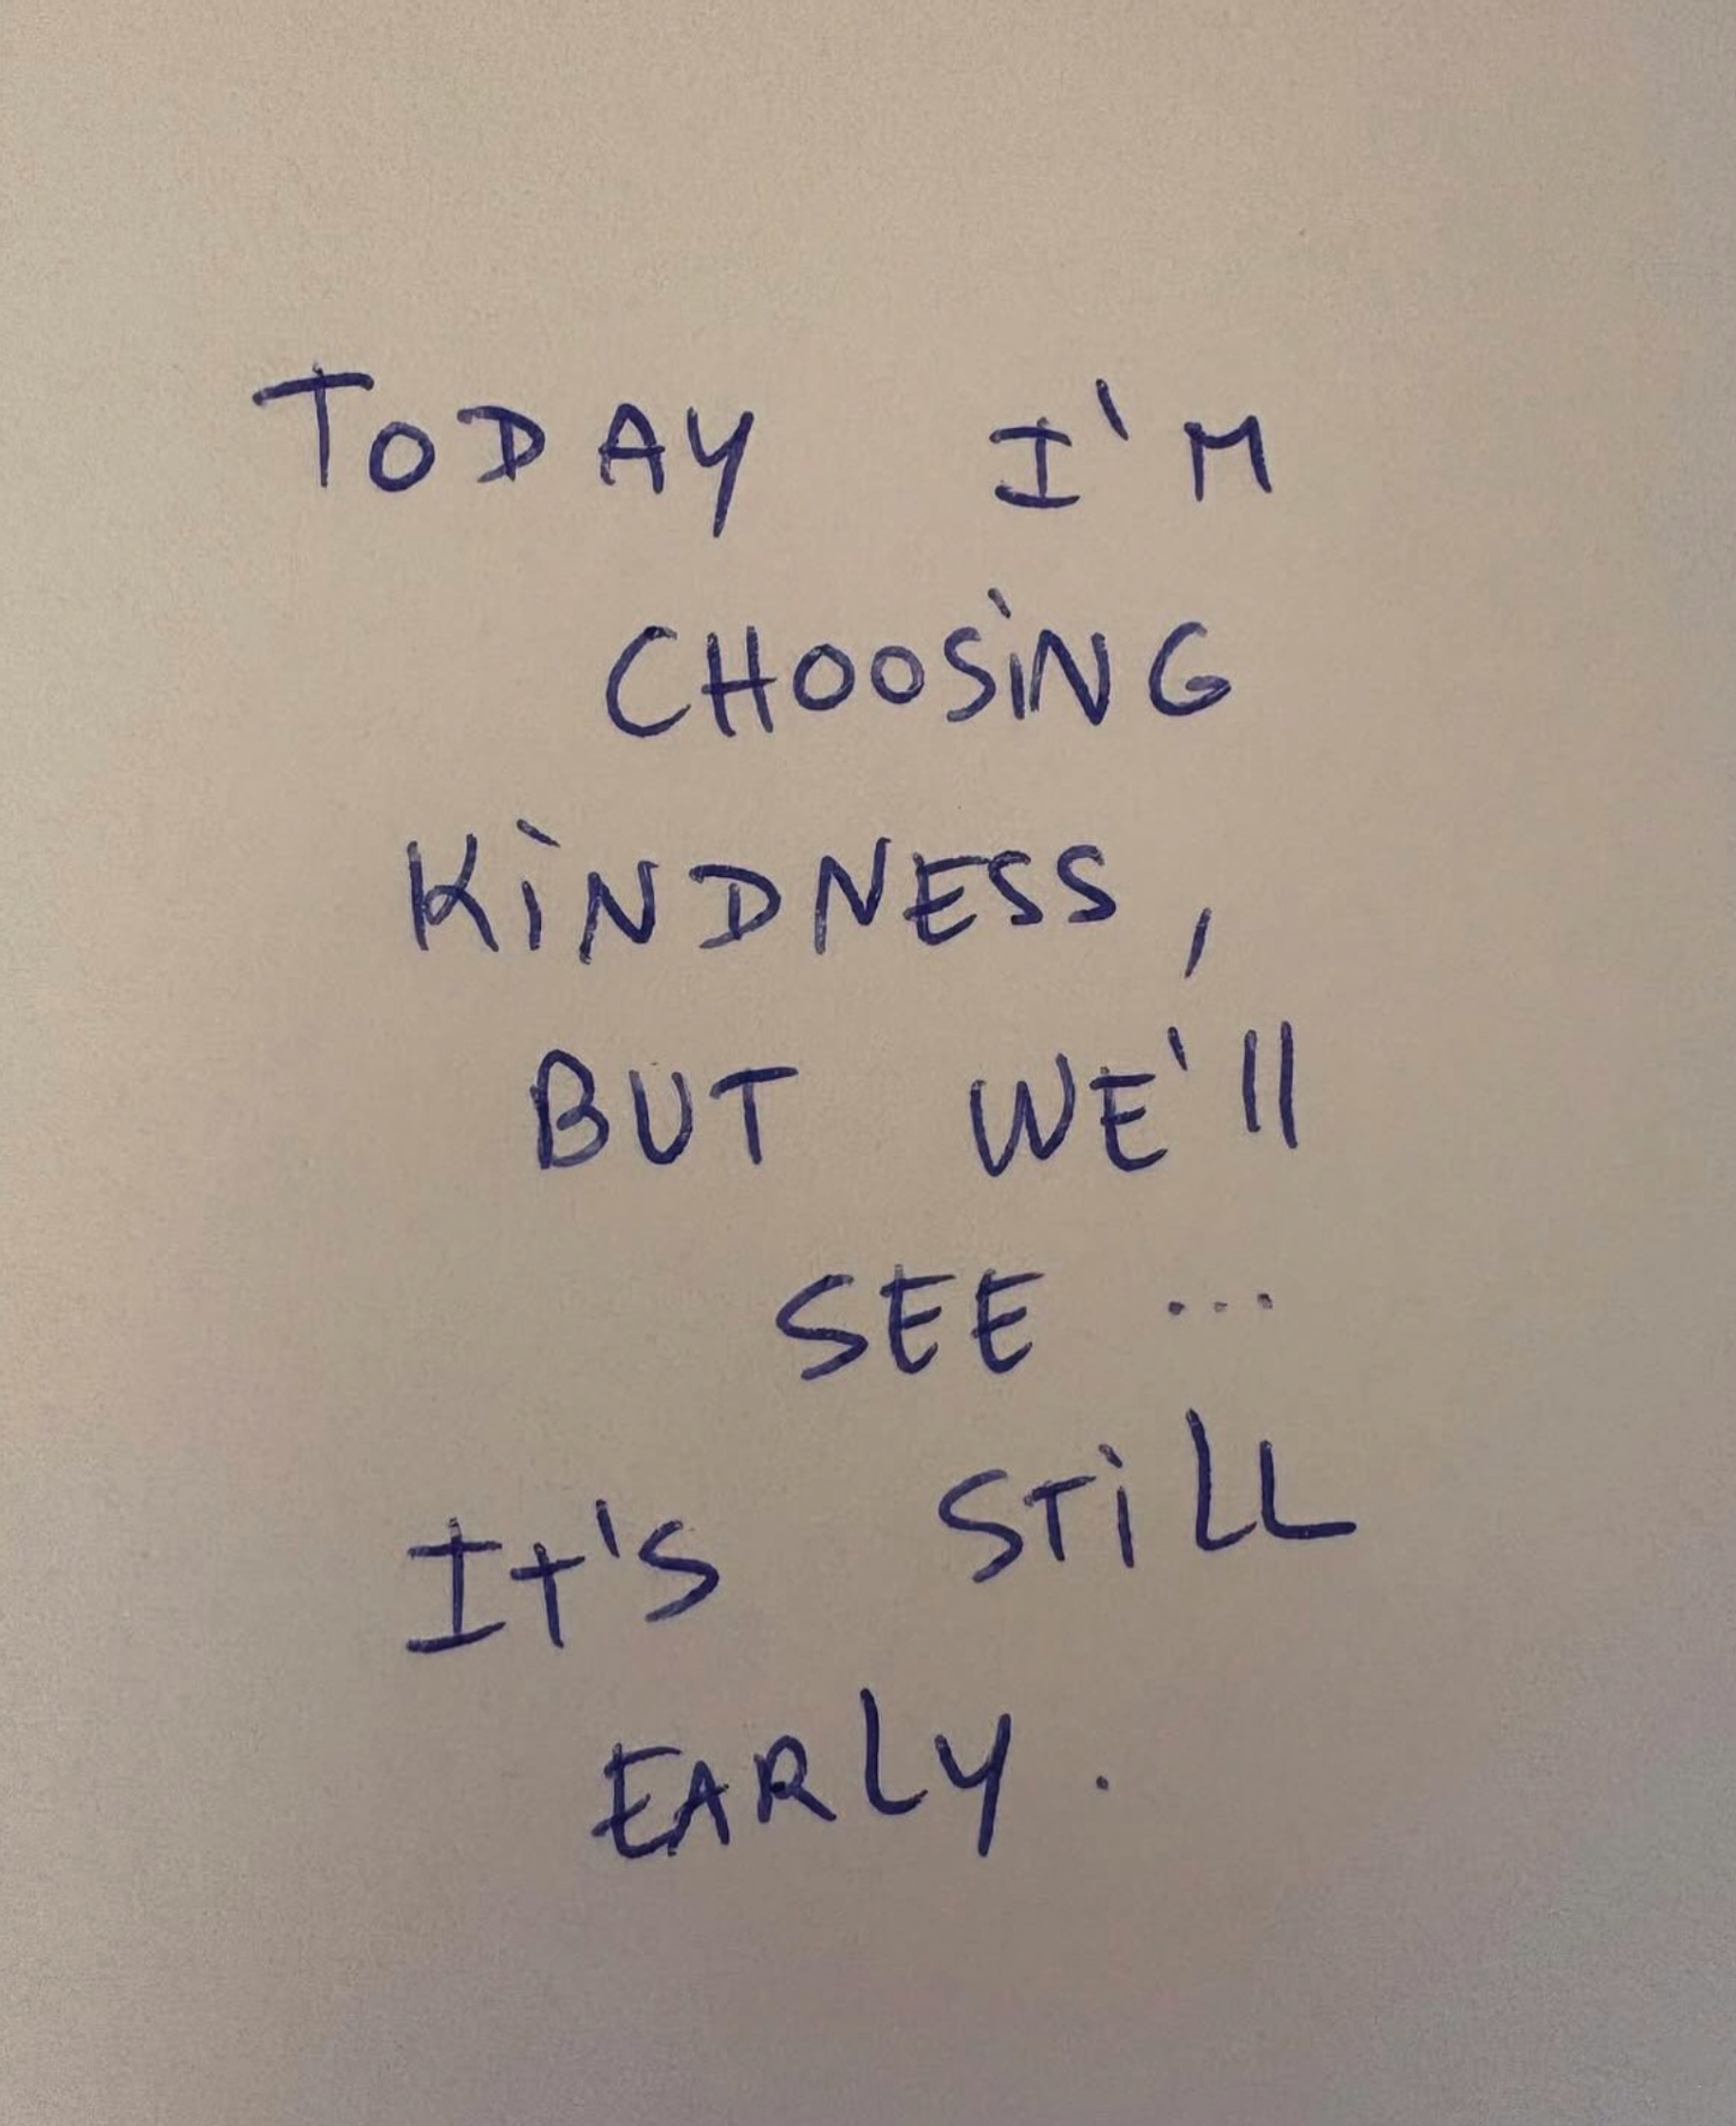 TODAY I'M
CHOOSiNG
KiNDNESS,
BUT WE'll
SEE ...
It'S STiLL
EARLY.